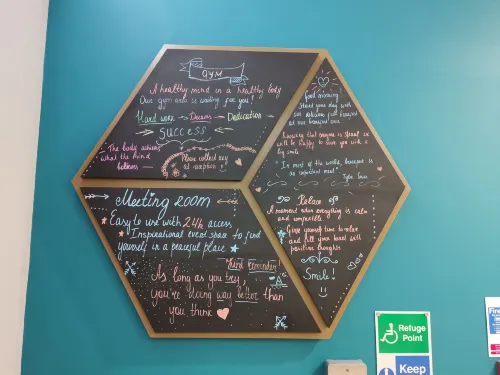 GYM
A healthy mind in a healthy body
Our gym area is waiting for you!
Hard work → Dreams → Dedication
SUCCESS
The body achieves
what the mind
believes
Please collect key
at reception
Good morning
Start your day with
our delicious full breakfast
at our
Knowing that
will be happy to serve you with a
big smile
In most of the world, breakfast is
an important meal.
Relax
A moment when everything is calm
and comfortable
Give yourself time to relax
and fill your head with
positive thoughts
Smile!
Meeting room
Easy to use with 24h access
Inspirational event space to find
yourself in a peaceful place
Mind Reminder
As long as you try,
you're doing way better than
you think
Refuge
Point
Keep
Fire